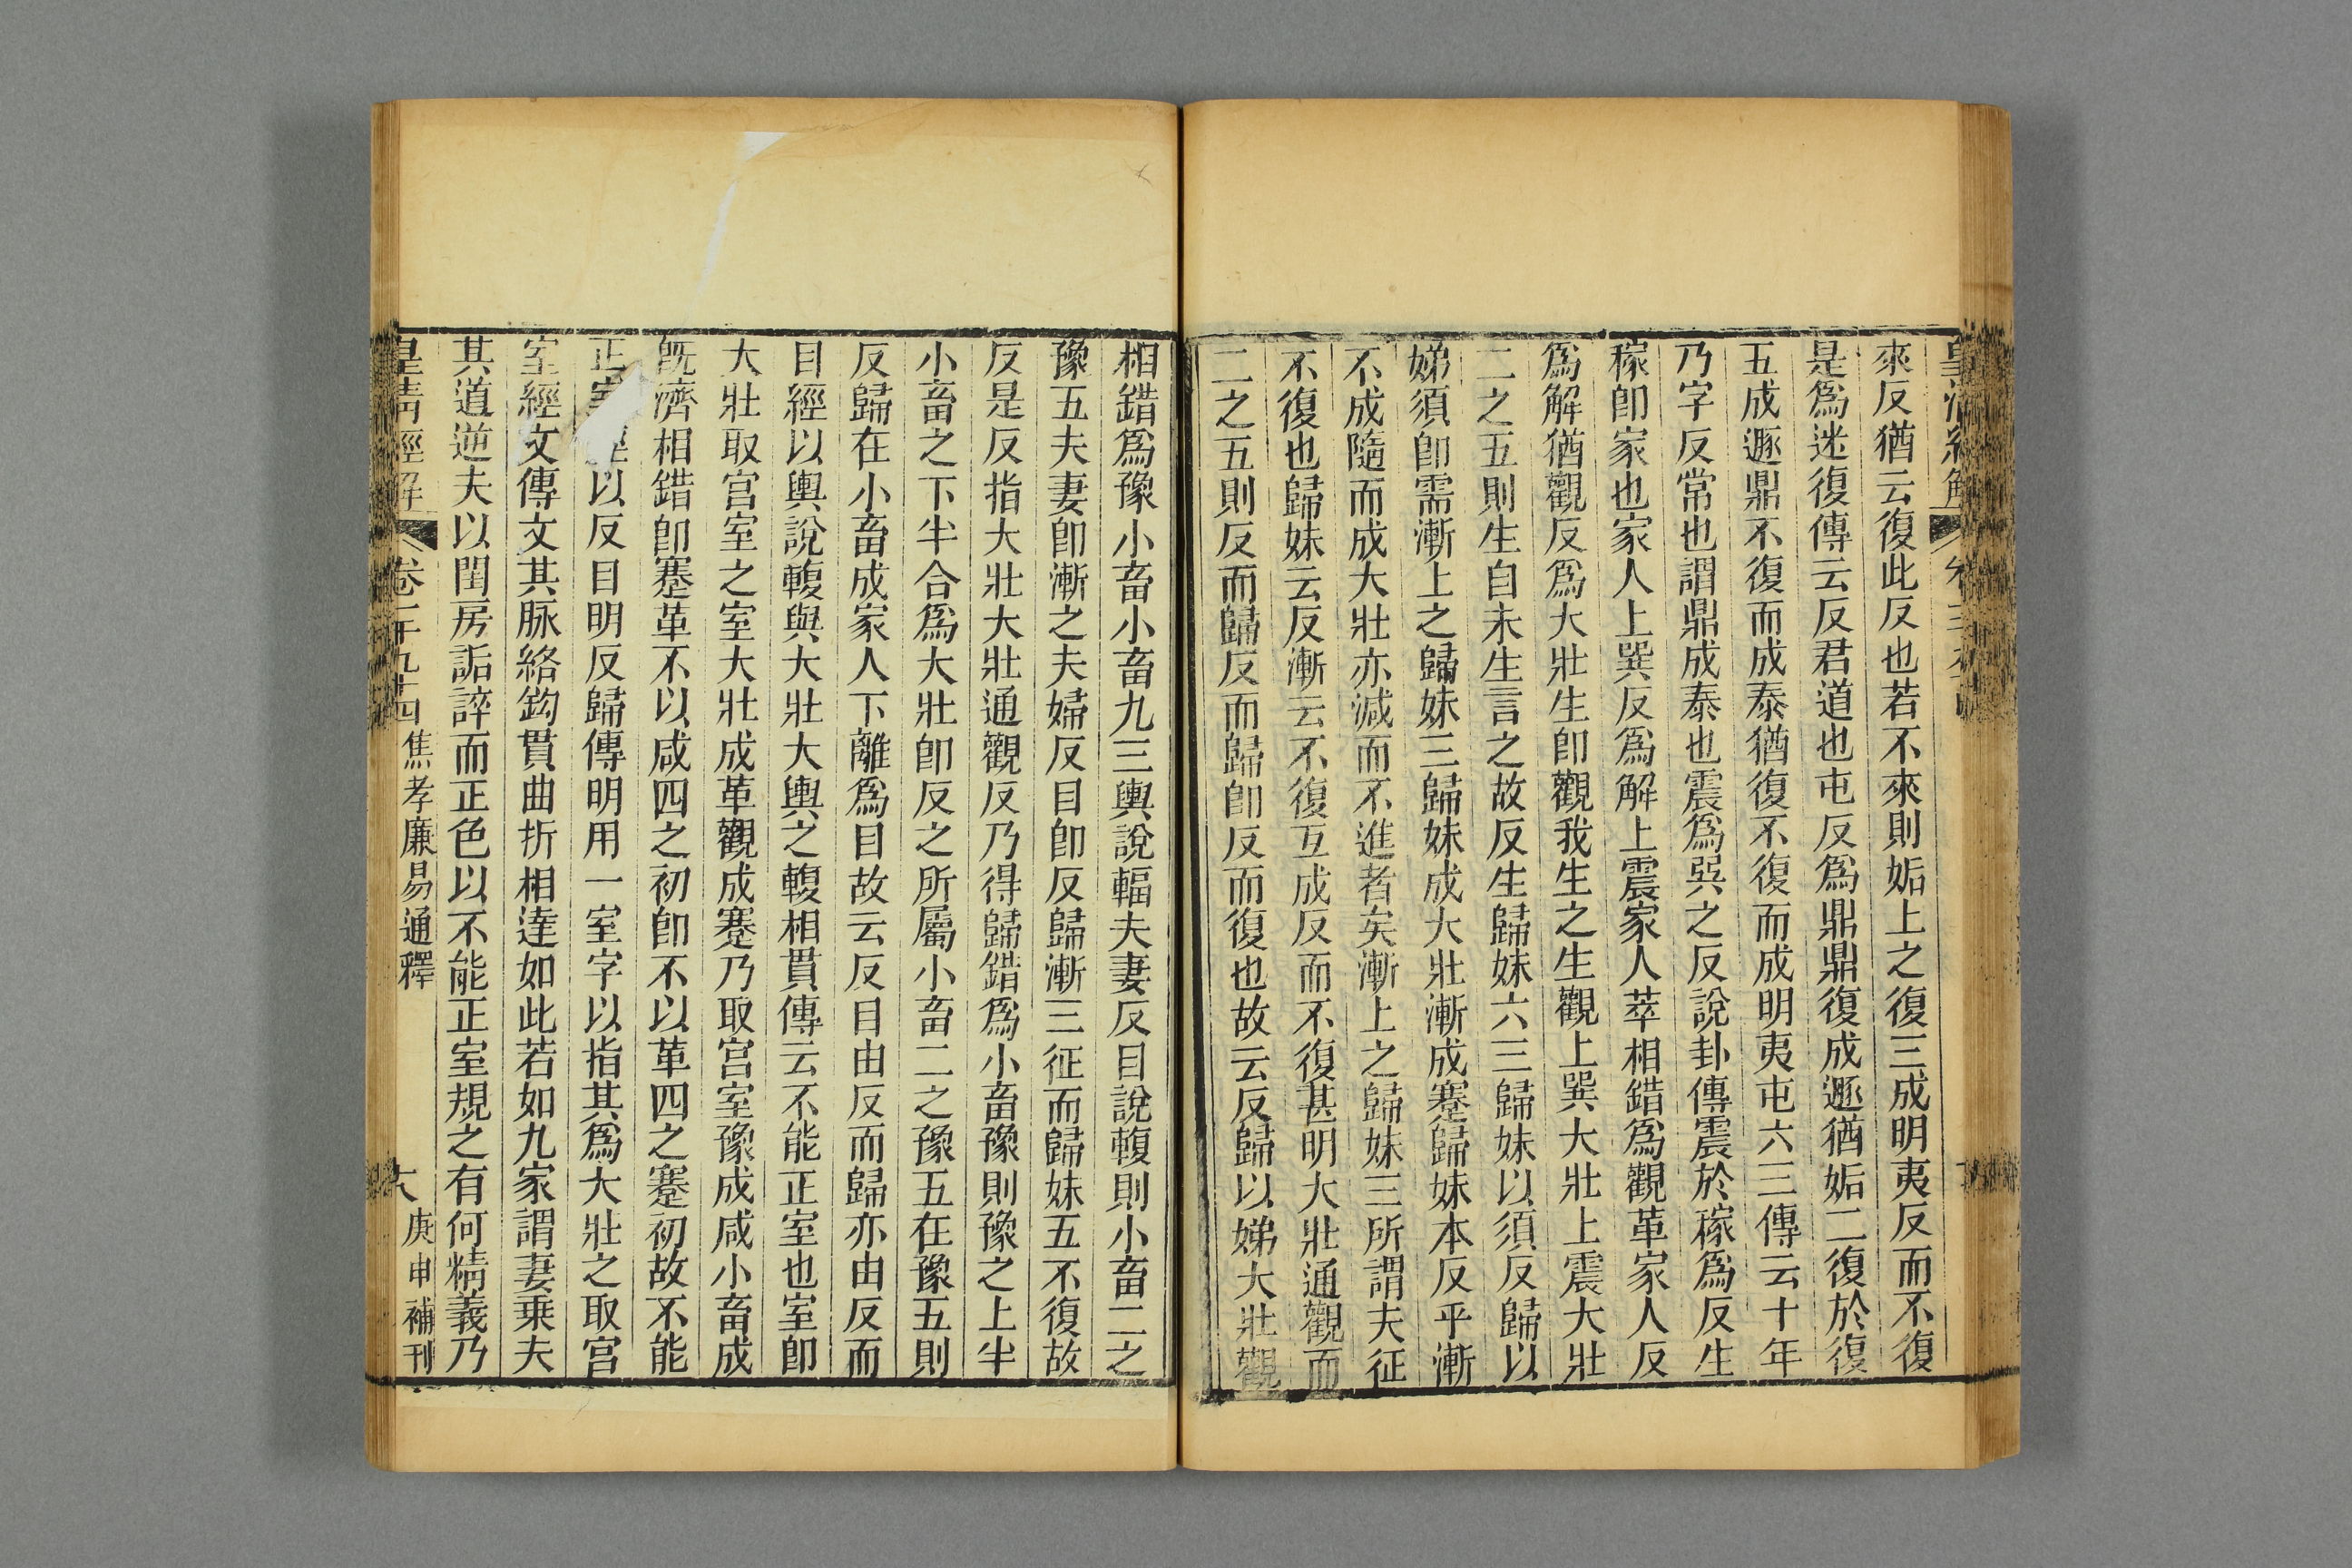 來反猶云復此反也若不來則姤上之復三成明夷反而不復
是爲迷復傳云反君道也屯反爲鼎鼎復成遯猶姤二復於復
五成遯鼎不復而成泰猶復不復而成明夷屯六三傳云十年
乃字反常也謂鼎成泰也震爲巽之反說卦傳震於稼爲反生
稼卽家也家人上巽反爲解上震家人萃相錯爲觀革家人反
爲解猶觀反爲大壯生卽觀我生之生觀上巽大壯上震大壯
二之五則生自未生言之故反生歸妹六三歸妹以須反歸以
娣須卽需漸上之歸妹三歸妹成大壯漸成蹇歸妹本反乎漸
不成隨而成大壯亦減而不進者矣漸上之歸妹三所謂夫征
不復也歸妹云反漸云不復互成反而不復甚明大壯通觀而
二之五則反而歸反而歸卽反而復也故云反歸以娣大壯觀
相錯爲豫小畜小畜九三輿說輻夫妻反目說輹則小畜二之
豫五夫妻卽漸之夫婦反目卽反歸漸三征而歸妹五不復故
反是反指大壯大壯通觀反乃得歸錯爲小畜豫則豫之上半
小畜之下半合爲大壯卽反之所屬小畜二之豫五在豫五則
反歸在小畜成家人下離爲目故云反目由反而歸亦由反而
目經以輿說輹與大壯大輿之輹相貫傳云不能正室也室卽
大壯取宮室之室大壯成革觀成蹇乃取宮室豫成咸小畜成
旣濟相錯卽蹇革不以咸四之初卽不以革四之蹇初故不能
正室以反目明反歸傳明用一室字以指其爲大壯之取宮
室經文傳文其脉絡鈎貫曲折相達如此若如九家謂妻乘夫
其道逆夫以閨房詬誶而正色以不能正室規之有何精義乃
皇淸經解 卷一千九十四 焦孝廉易通釋 六 庚申補刊